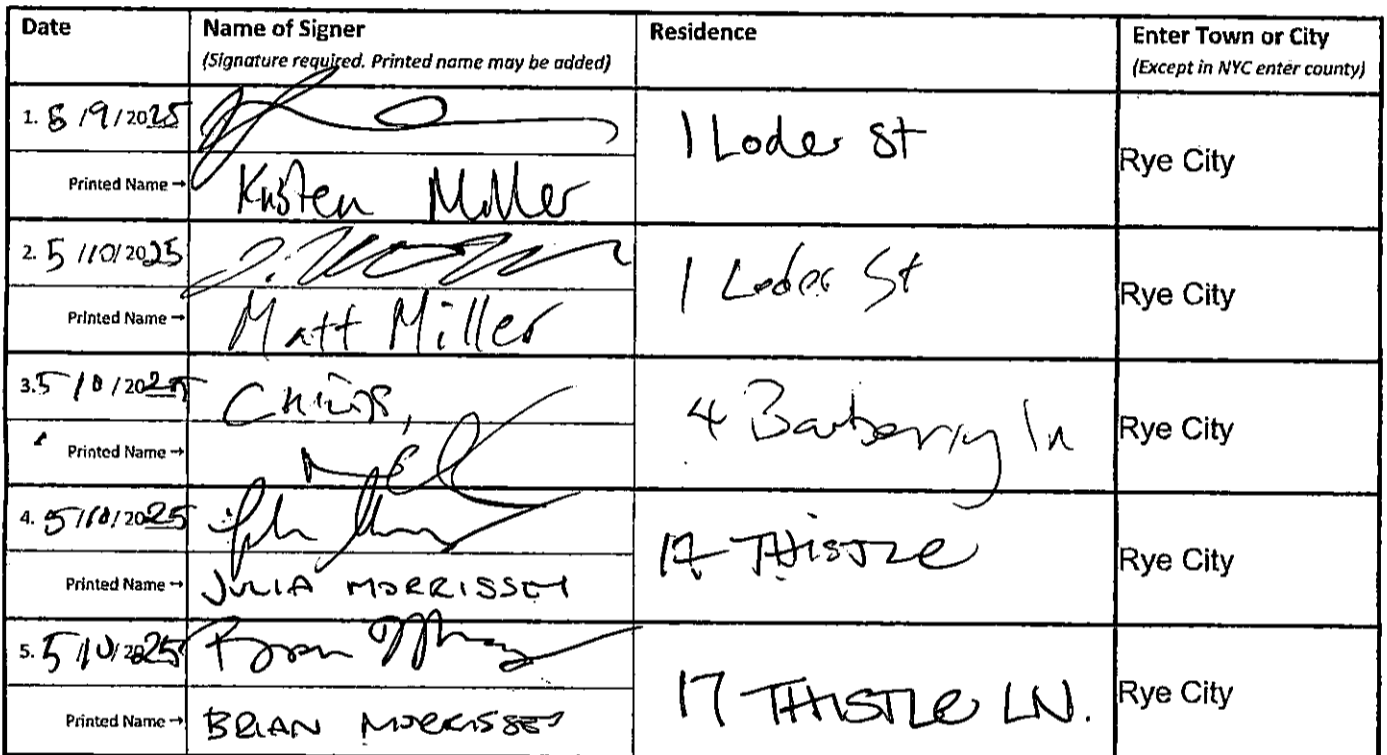 Date Name of Signer Residence Enter Town or City
(Signature required. Printed name may be added) (Except in NYC enter county)
1. 5/9/2025 1 Loder St Rye City
Printed Name → Kristen Miller
2. 5/10/2025 1 Loder St Rye City
Printed Name → Matt Miller
3. 5/10/2025 4 Barberry ln Rye City
Printed Name →
4. 5/10/2025 17 THISTLE Rye City
Printed Name → JULIA MORRISSEY
5. 5/10/2025 17 THISTLE LN. Rye City
Printed Name → BRIAN MORRISSEY